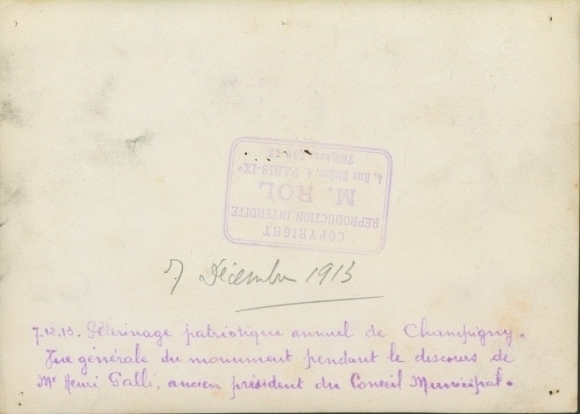 COPYRIGHT
REPRODUCTION INTERDITE
M. ROL
4, Rue Richer, PARIS-IXe
7 Décembre 1913
7.12.13. Pélerinage patriotique annuel de Champigny.
Vue générale du monument pendant le discours de
Mr Henri Galli, ancien président du Conseil Municipal.